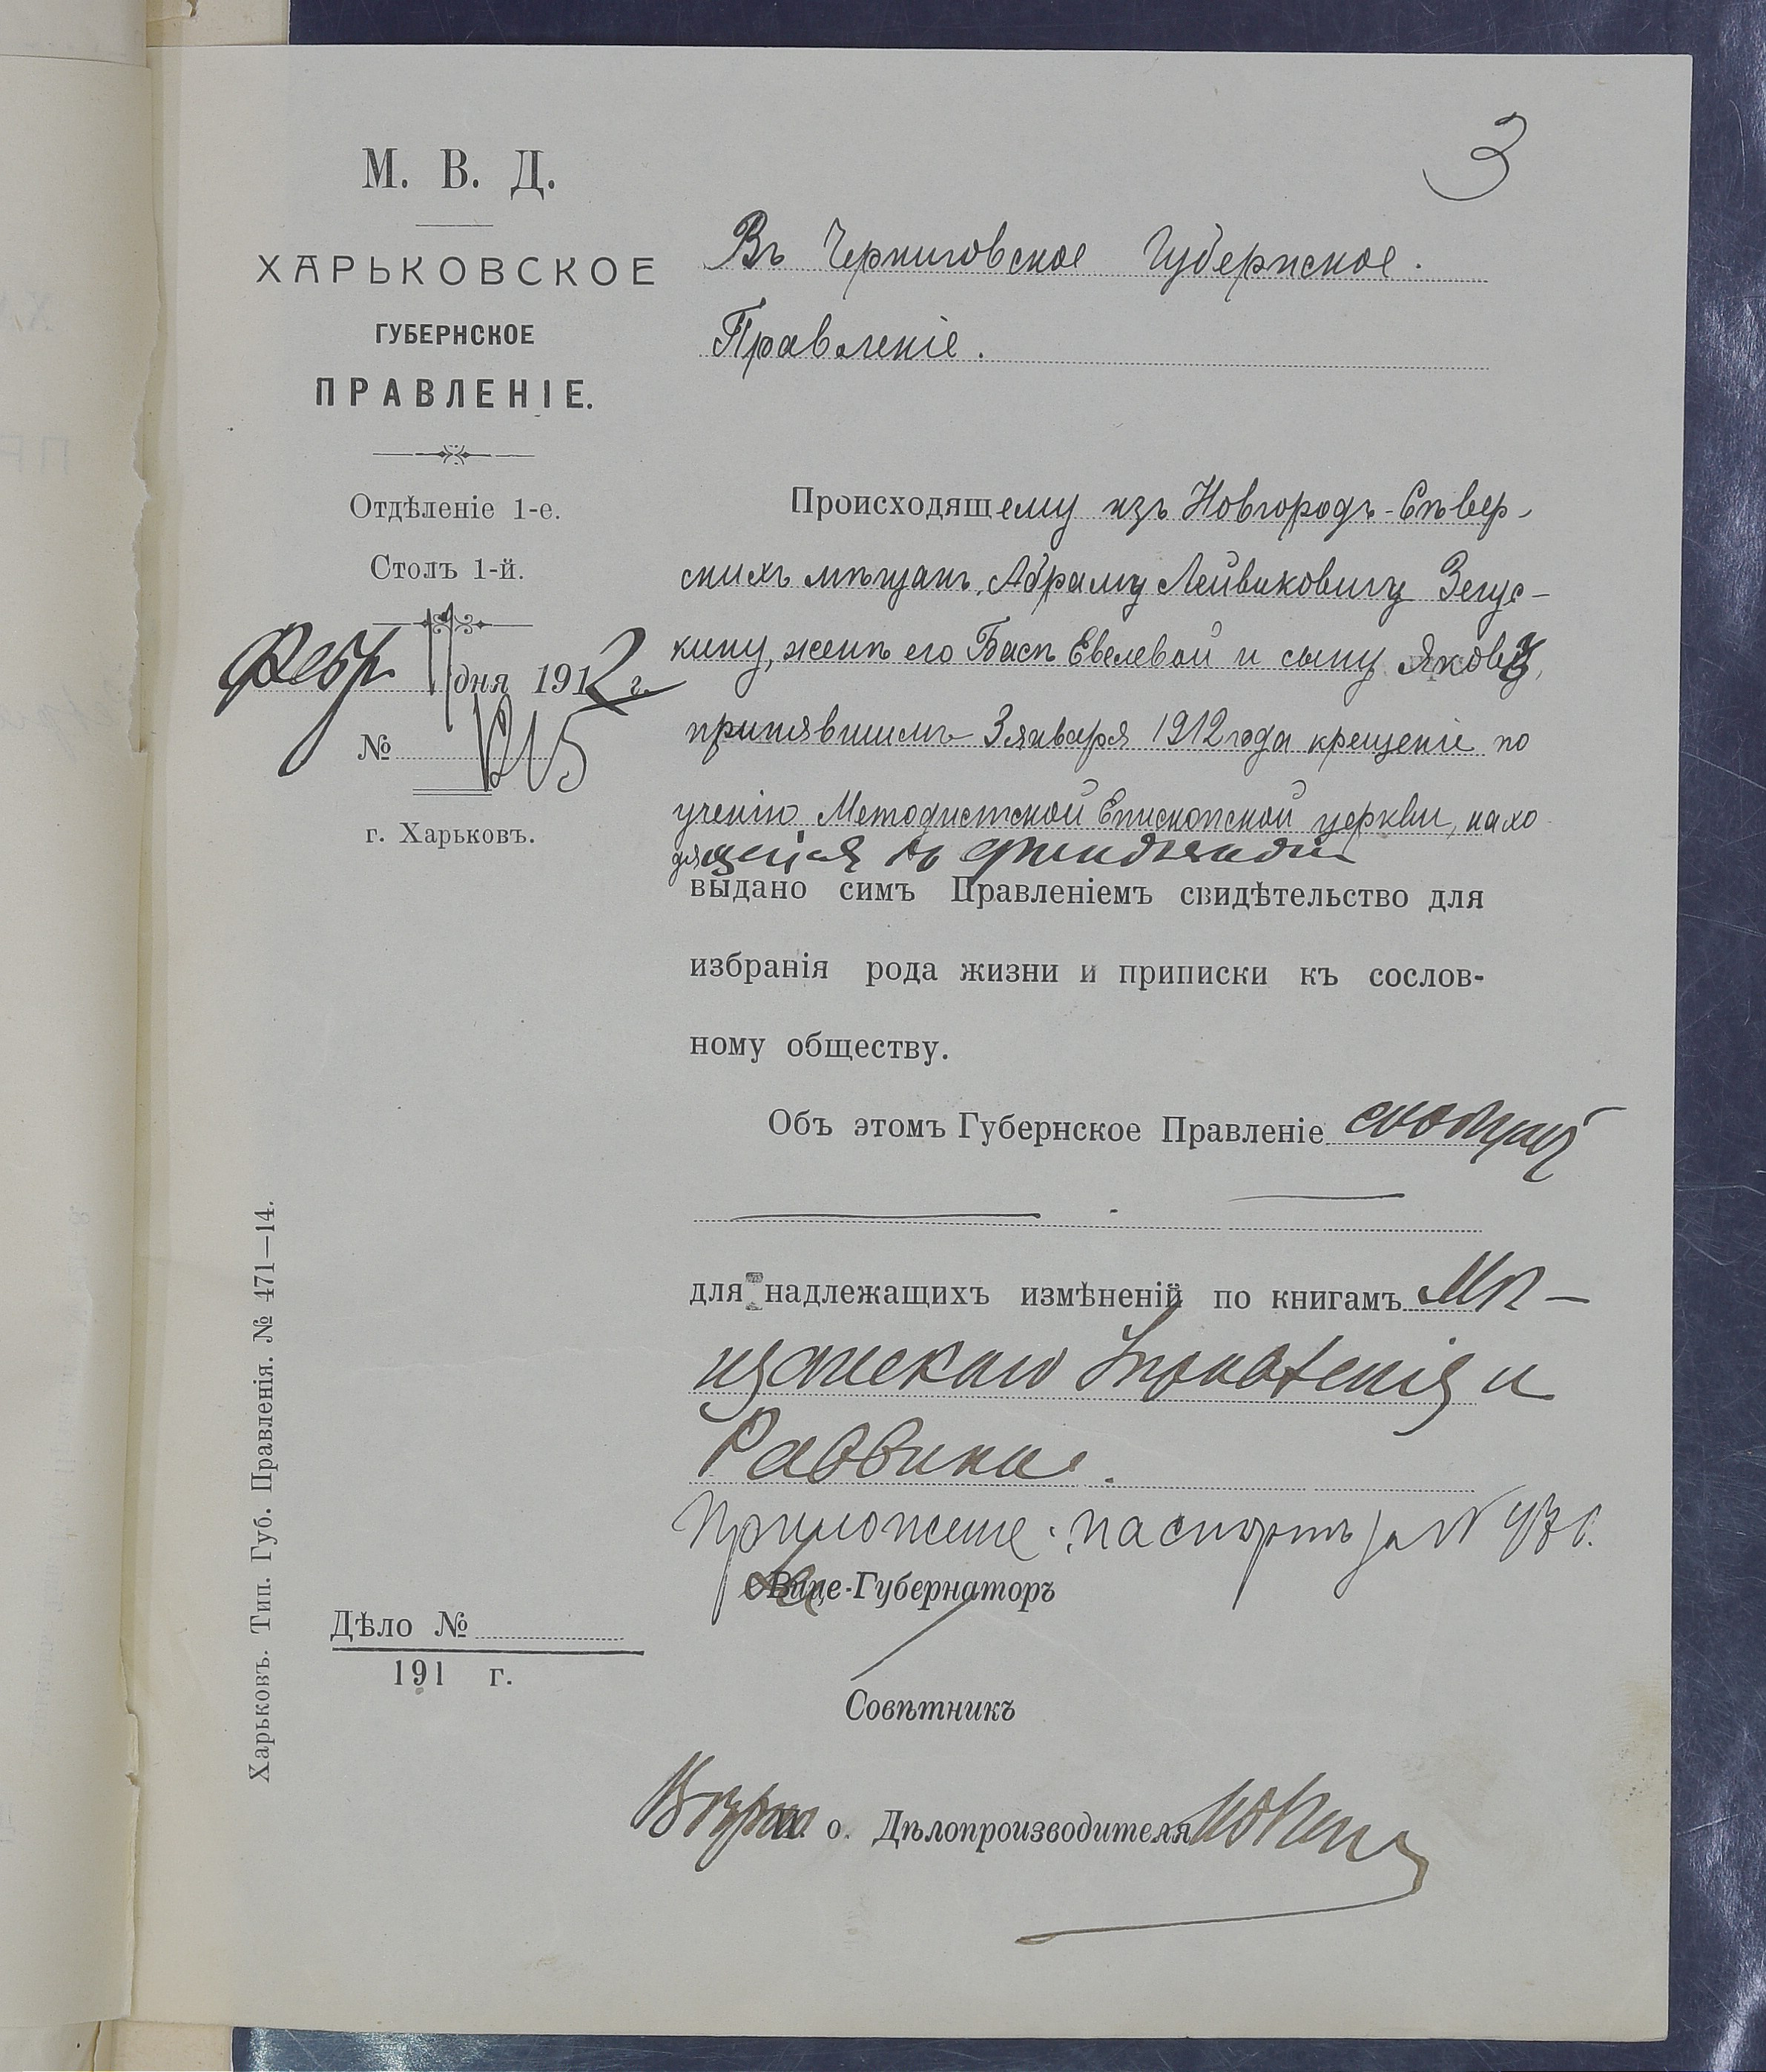 3
М. В. Д.
ХАРЬКОВСКОЕ
ГУБЕРНСКОЕ
ПРАВЛЕНІЕ.
Отдѣленіе 1-е.
Столъ 1-й.
Февр 11 дня 1912 г.
№ 1215
г. Харьковъ.
Въ Черниговское Губернское
Правленіе.
Происходящему изъ Новгородъ-Сѣвер-
скихъ мѣщанъ, Абраму Лейвиковичу Зегус-
кину, женѣ его Басѣ Евелевой и сыну Якову,
принявшимъ 3 января 1912 года крещеніе по
ученію Методистской Епископской церкви, нахо
дящейся въ Финляндіи
выдано симъ Правленіемъ свидѣтельство для
избранія рода жизни и приписки къ сослов-
ному обществу.
Объ этомъ Губернское Правленіе сообщаетъ
для надлежащихъ измѣненій по книгамъ Мѣ-
щанскаго Управленія и
Раввина.
Приложеніе: паспортъ за №
Вице-Губернаторъ
Совѣтникъ
Вѣрно И. о. Дѣлопроизводителя
Дѣло №
191 г.
Харьковъ. Тип. Губ. Правленія. № 471—14.